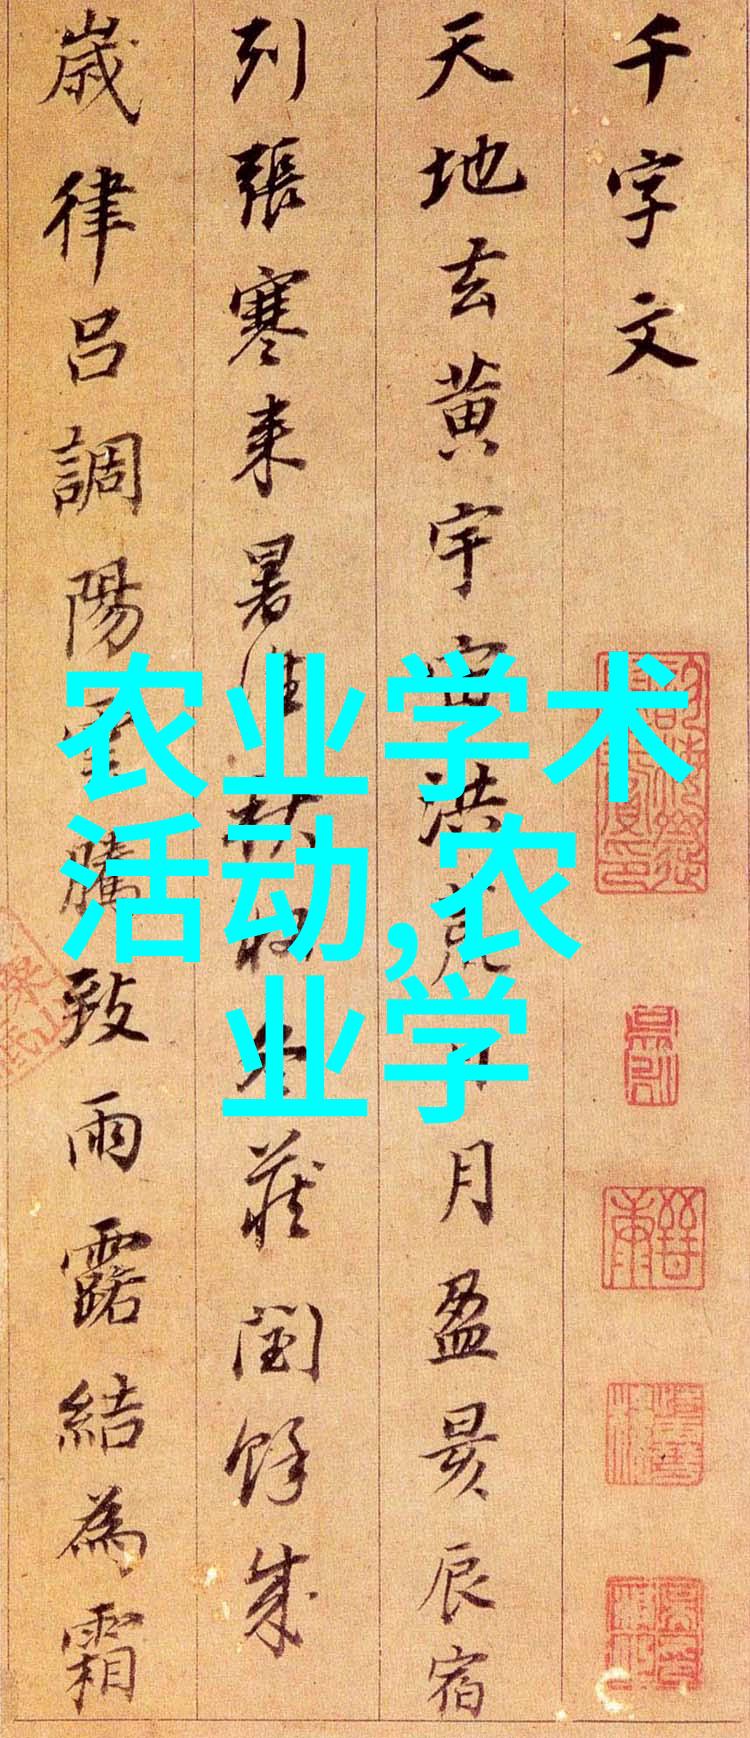 千字文
天地玄黄宇宙洪荒日月盈昃辰宿
列張寒来暑往秋收冬蔵閏餘成
歳律呂調陽雲騰致雨露結為霜
农业学术
活动,农
业学